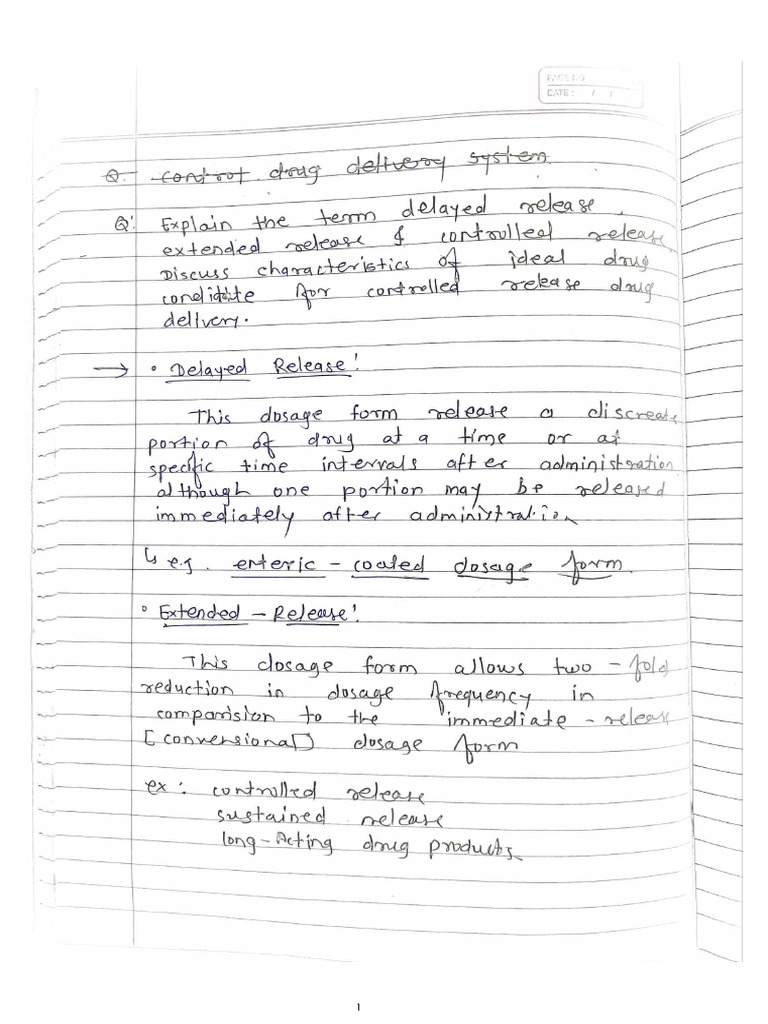 PAGE NO
DATE: / /
Q. control drug delivery system.
Q: Explain the term delayed release,
extended release & controlled release.
Discuss characteristics of ideal drug
condidite for controlled release drug
delivery.
→ • Delayed Release:
This dosage form release a discreate
portion of drug at a time or at
specific time intervals after administration
although one portion may be released
immediately after administration
↳ e.g. enteric - coated dosage form.
• Extended - Release:
This dosage form allows two - fold
reduction in dosage frequency in
comparision to the immediate - release
[conversional] dosage form
ex: controlled release
sustained release
long-Acting drug products
1